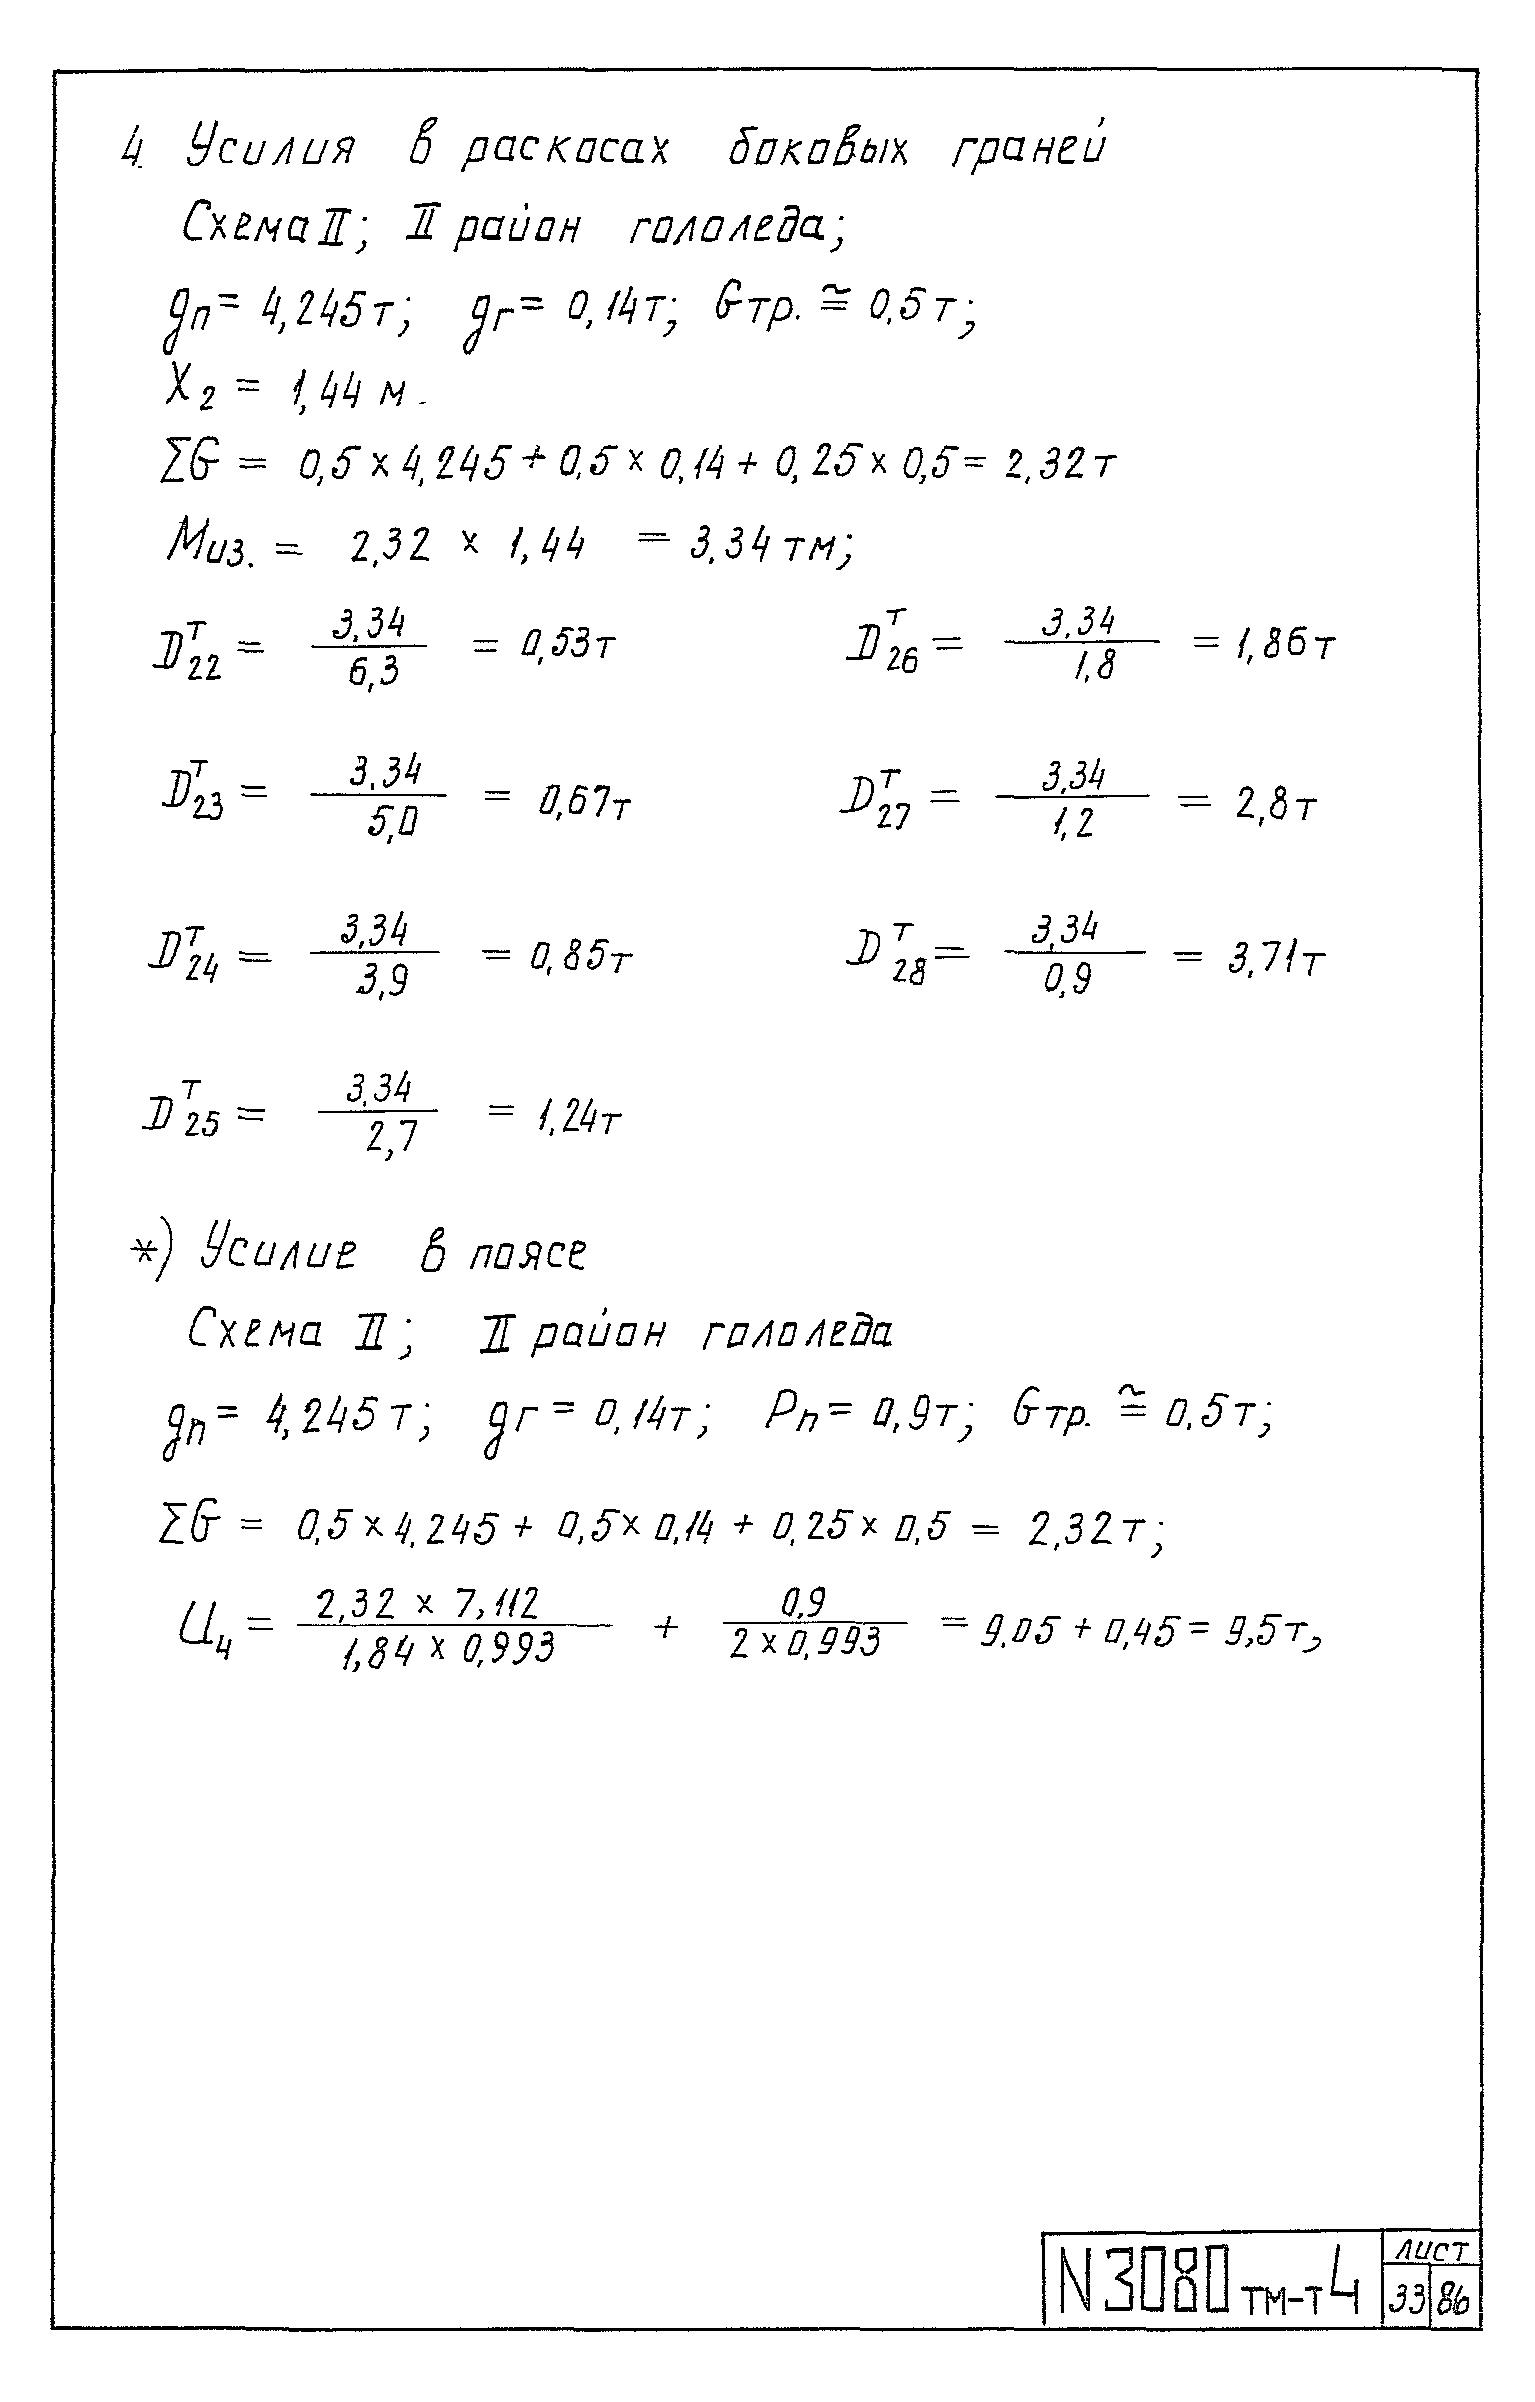 4. Усилия в раскосах боковых граней
Схема II; II район гололеда;
gп = 4,245т; gг = 0,14т; Gтр. ≅ 0,5т;
X2 = 1,44 м.
ΣG = 0,5 × 4,245 + 0,5 × 0,14 + 0,25 × 0,5 = 2,32т
Mиз. = 2,32 × 1,44 = 3,34 тм;
D^т_22 = 3,34 / 6,3 = 0,53т D^т_26 = 3,34 / 1,8 = 1,86т
D^т_23 = 3,34 / 5,0 = 0,67т D^т_27 = 3,34 / 1,2 = 2,8т
D^т_24 = 3,34 / 3,9 = 0,85т D^т_28 = 3,34 / 0,9 = 3,71т
D^т_25 = 3,34 / 2,7 = 1,24т
*) Усилие в поясе
Схема II; II район гололеда
gп = 4,245т; gг = 0,14т; Pп = 0,9т; Gтр. ≅ 0,5т;
ΣG = 0,5 × 4,245 + 0,5 × 0,14 + 0,25 × 0,5 = 2,32т;
U4 = 2,32 × 7,112 / 1,84 × 0,993 + 0,9 / 2 × 0,993 = 9,05 + 0,45 = 9,5т,
N3080тм-т4
лист
33 86